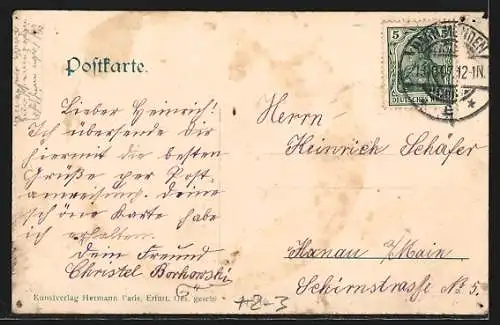 Postkarte.
5
DEUTSCHES REICH
12-1N.
Lieber Heinrich!
Ich übersende Dir
hiermit die besten
Grüße per Post
anweisung. Deine
schöne Karte habe
ich erhalten.
Dein Freund
Christel Borkowski
Herrn
Heinrich Schäfer
Hanau a/Main
Schirnstrasse No 5.
Kunstverlag Hermann Paris, Erfurt. Ges. gesch.